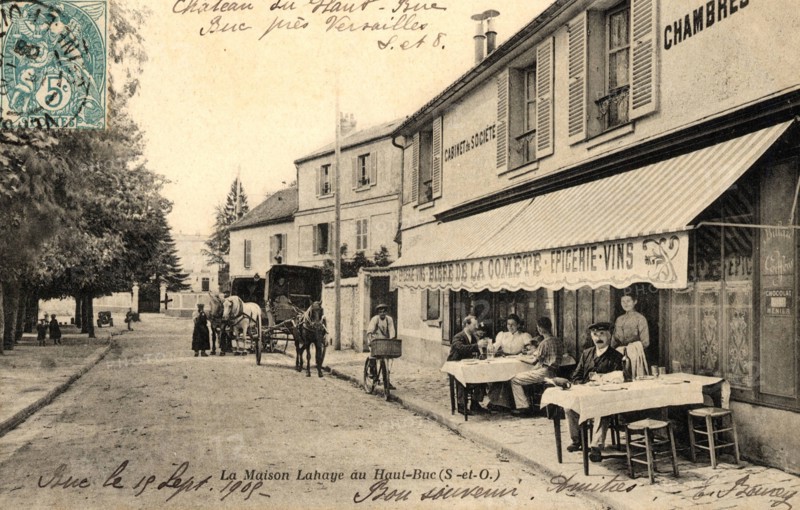 Château du Haut-Buc
Buc près Versailles
S. et O.
5
CHAMBRES
CABINET de SOCIÉTÉ
BIÈRE DE LA COMÈTE - ÉPICERIE - VINS
CHOCOLAT
MENIER
La Maison Lahaye au Haut-Buc (S.-et-O.)
Buc le 15 Sept. 1905
Bon souvenir
Amitiés